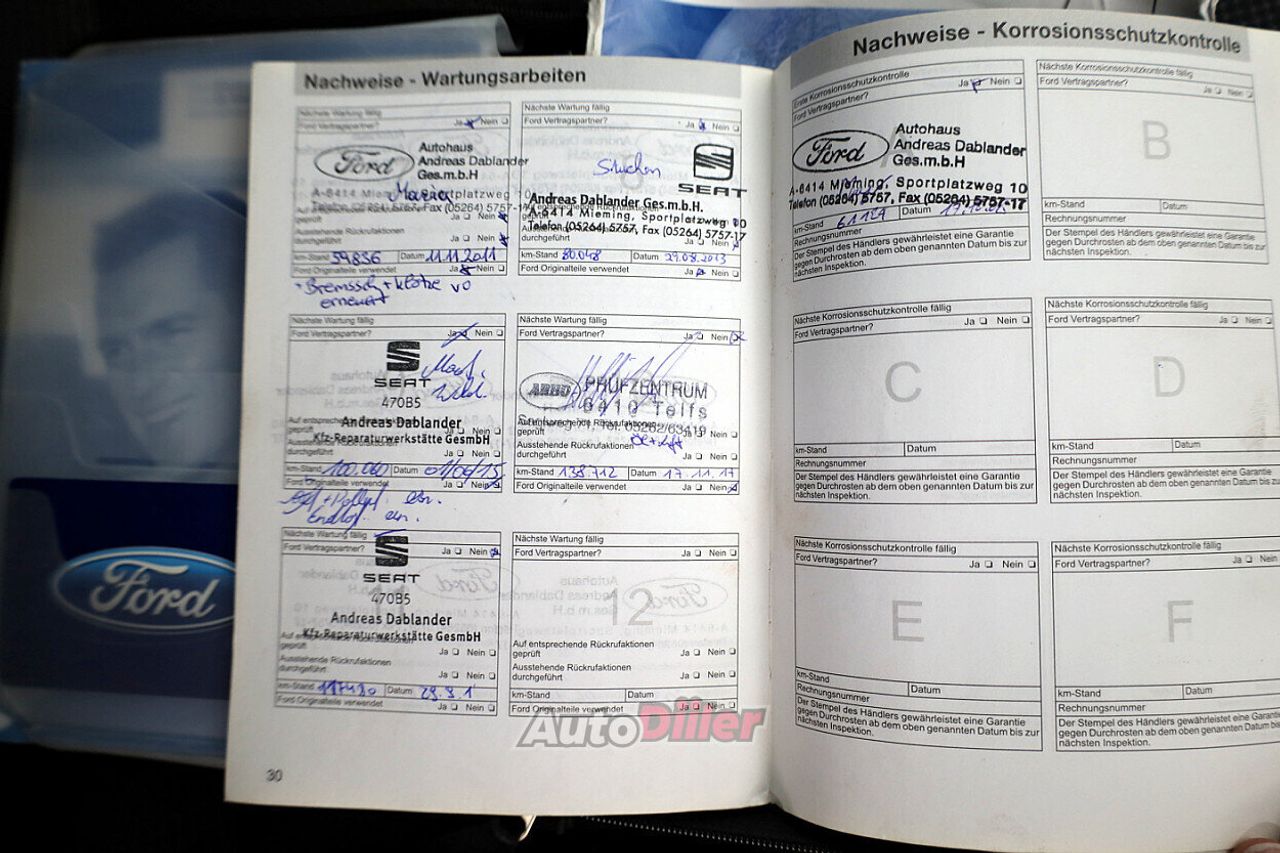 Nachweise - Wartungsarbeiten
Nächste Wartung fällig
Ford Vertragspartner? Ja Nein
Ford
Autohaus
Andreas Dablander
Ges.m.b.H
A-6414 Mieming, Sportplatzweg 10
Telefon (05264) 5757, Fax (05264) 5757-17
Auf entsprechende Rückrufaktionen
geprüft Ja Nein
Ausstehende Rückrufaktionen
durchgeführt Ja Nein
km-Stand 59836 Datum 11.11.2011
Ford Originalteile verwendet Ja Nein
erneuert
Nächste Wartung fällig
Ford Vertragspartner? Ja Nein
SEAT
Andreas Dablander Ges.m.b.H.
A-6414 Mieming, Sportplatzweg 10
Telefon (05264) 5757, Fax (05264) 5757-17
durchgeführt Ja Nein
km-Stand 80.048 Datum 29.08.2013
Ford Originalteile verwendet Ja Nein
Nächste Wartung fällig
Ford Vertragspartner? Ja Nein
SEAT
470B5
Andreas Dablander
Kfz-Reparaturwerkstätte GesmbH
Auf entsprechende
geprüft Ja Nein
Ausstehende Rückrufaktionen
durchgeführt Ja Nein
km-Stand 100.060 Datum 01/06/15
Ford Originalteile verwendet Ja Nein
Nächste Wartung fällig
Ford Vertragspartner? Ja Nein
ARBÖ PRÜFZENTRUM
6410 Telfs
Tel. 05262/63419
Auf entsprechende Rückrufaktionen
geprüft Ja Nein
Ausstehende Rückrufaktionen
durchgeführt Ja Nein
km-Stand 138.712 Datum 17.11.17
Ford Originalteile verwendet Ja Nein
Nächste Wartung fällig
Ford Vertragspartner? Ja Nein
SEAT
470B5
Andreas Dablander
Kfz-Reparaturwerkstätte GesmbH
Auf entsprechende Rückrufaktionen
geprüft Ja Nein
Ausstehende Rückrufaktionen
durchgeführt Ja Nein
km-Stand Datum
Ford Originalteile verwendet Ja Nein
Nächste Wartung fällig
Ford Vertragspartner? Ja Nein
12
Auf entsprechende Rückrufaktionen
geprüft Ja Nein
Ausstehende Rückrufaktionen
durchgeführt Ja Nein
km-Stand Datum
Ford Originalteile verwendet Ja Nein
30
Nachweise - Korrosionsschutzkontrolle
Erste Korrosionsschutzkontrolle
Ford Vertragspartner? Ja Nein
Ford
Autohaus
Andreas Dablander
Ges.m.b.H
A-6414 Mieming, Sportplatzweg 10
Telefon (05264) 5757, Fax (05264) 5757-17
km-Stand Datum
Rechnungsnummer
Der Stempel des Händlers gewährleistet eine Garantie
gegen Durchrosten ab dem oben genannten Datum bis zur
nächsten Inspektion.
Nächste Korrosionsschutzkontrolle fällig
Ford Vertragspartner? Ja Nein
B
km-Stand Datum
Rechnungsnummer
Der Stempel des Händlers gewährleistet eine Garantie
gegen Durchrosten ab dem oben genannten Datum bis zur
nächsten Inspektion.
Nächste Korrosionsschutzkontrolle fällig
Ford Vertragspartner? Ja Nein
C
km-Stand Datum
Rechnungsnummer
Der Stempel des Händlers gewährleistet eine Garantie
gegen Durchrosten ab dem oben genannten Datum bis zur
nächsten Inspektion.
Nächste Korrosionsschutzkontrolle fällig
Ford Vertragspartner? Ja Nein
D
km-Stand Datum
Rechnungsnummer
Der Stempel des Händlers gewährleistet eine Garantie
gegen Durchrosten ab dem oben genannten Datum bis zu
nächsten Inspektion.
Nächste Korrosionsschutzkontrolle fällig
Ford Vertragspartner? Ja Nein
E
km-Stand Datum
Rechnungsnummer
Der Stempel des Händlers gewährleistet eine Garantie
gegen Durchrosten ab dem oben genannten Datum bis zu
nächsten Inspektion.
Nächste Korrosionsschutzkontrolle fällig
Ford Vertragspartner? Ja
F
km-Stand Datum
Rechnungsnummer
Der Stempel des Händlers gewährleistet eine Garantie
gegen Durchrosten ab dem oben genannten Datum bis zu
nächsten Inspektion.
Ford
AutoDiller